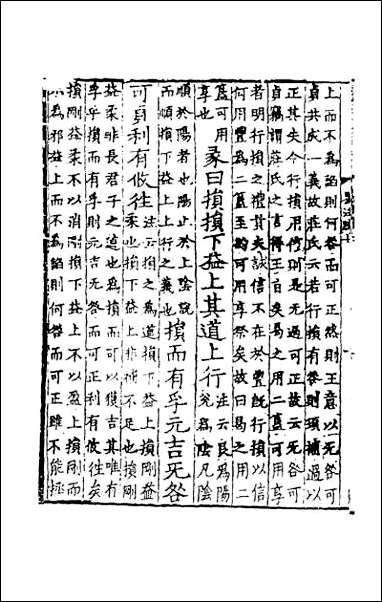 上而不為諂則何咎而可正然則王意以无咎可
貞共成一義故莊氏云若行損有咎則須補過以
正其失今行損用信則是无過可正故云无咎可
貞竊謂莊氏之言得王旨矣曷之用二簋可用享
者明行損之禮貴夫誠信不在於豐既行損以信
何用豐為二簋至約可用享祭矣故曰曷之用二
簋可用享也
彖曰損損下益上其道上行
注云艮為陽兌為陰凡陰
順於陽者也陽止於上陰說
而順損下益上上行之義也
損而有孚元吉无咎
可貞利有攸往
注云損之為道損下益上損剛益
柔也損下益上非補不足也損剛
益柔非長君子之道也為損而可以獲吉其唯有
孚乎損而有孚則元吉无咎而可正利有攸往矣
損剛益柔不以消剛損下益上不以盈上損剛而
不為邪益上而不為諂則何咎而可正雖不能拯